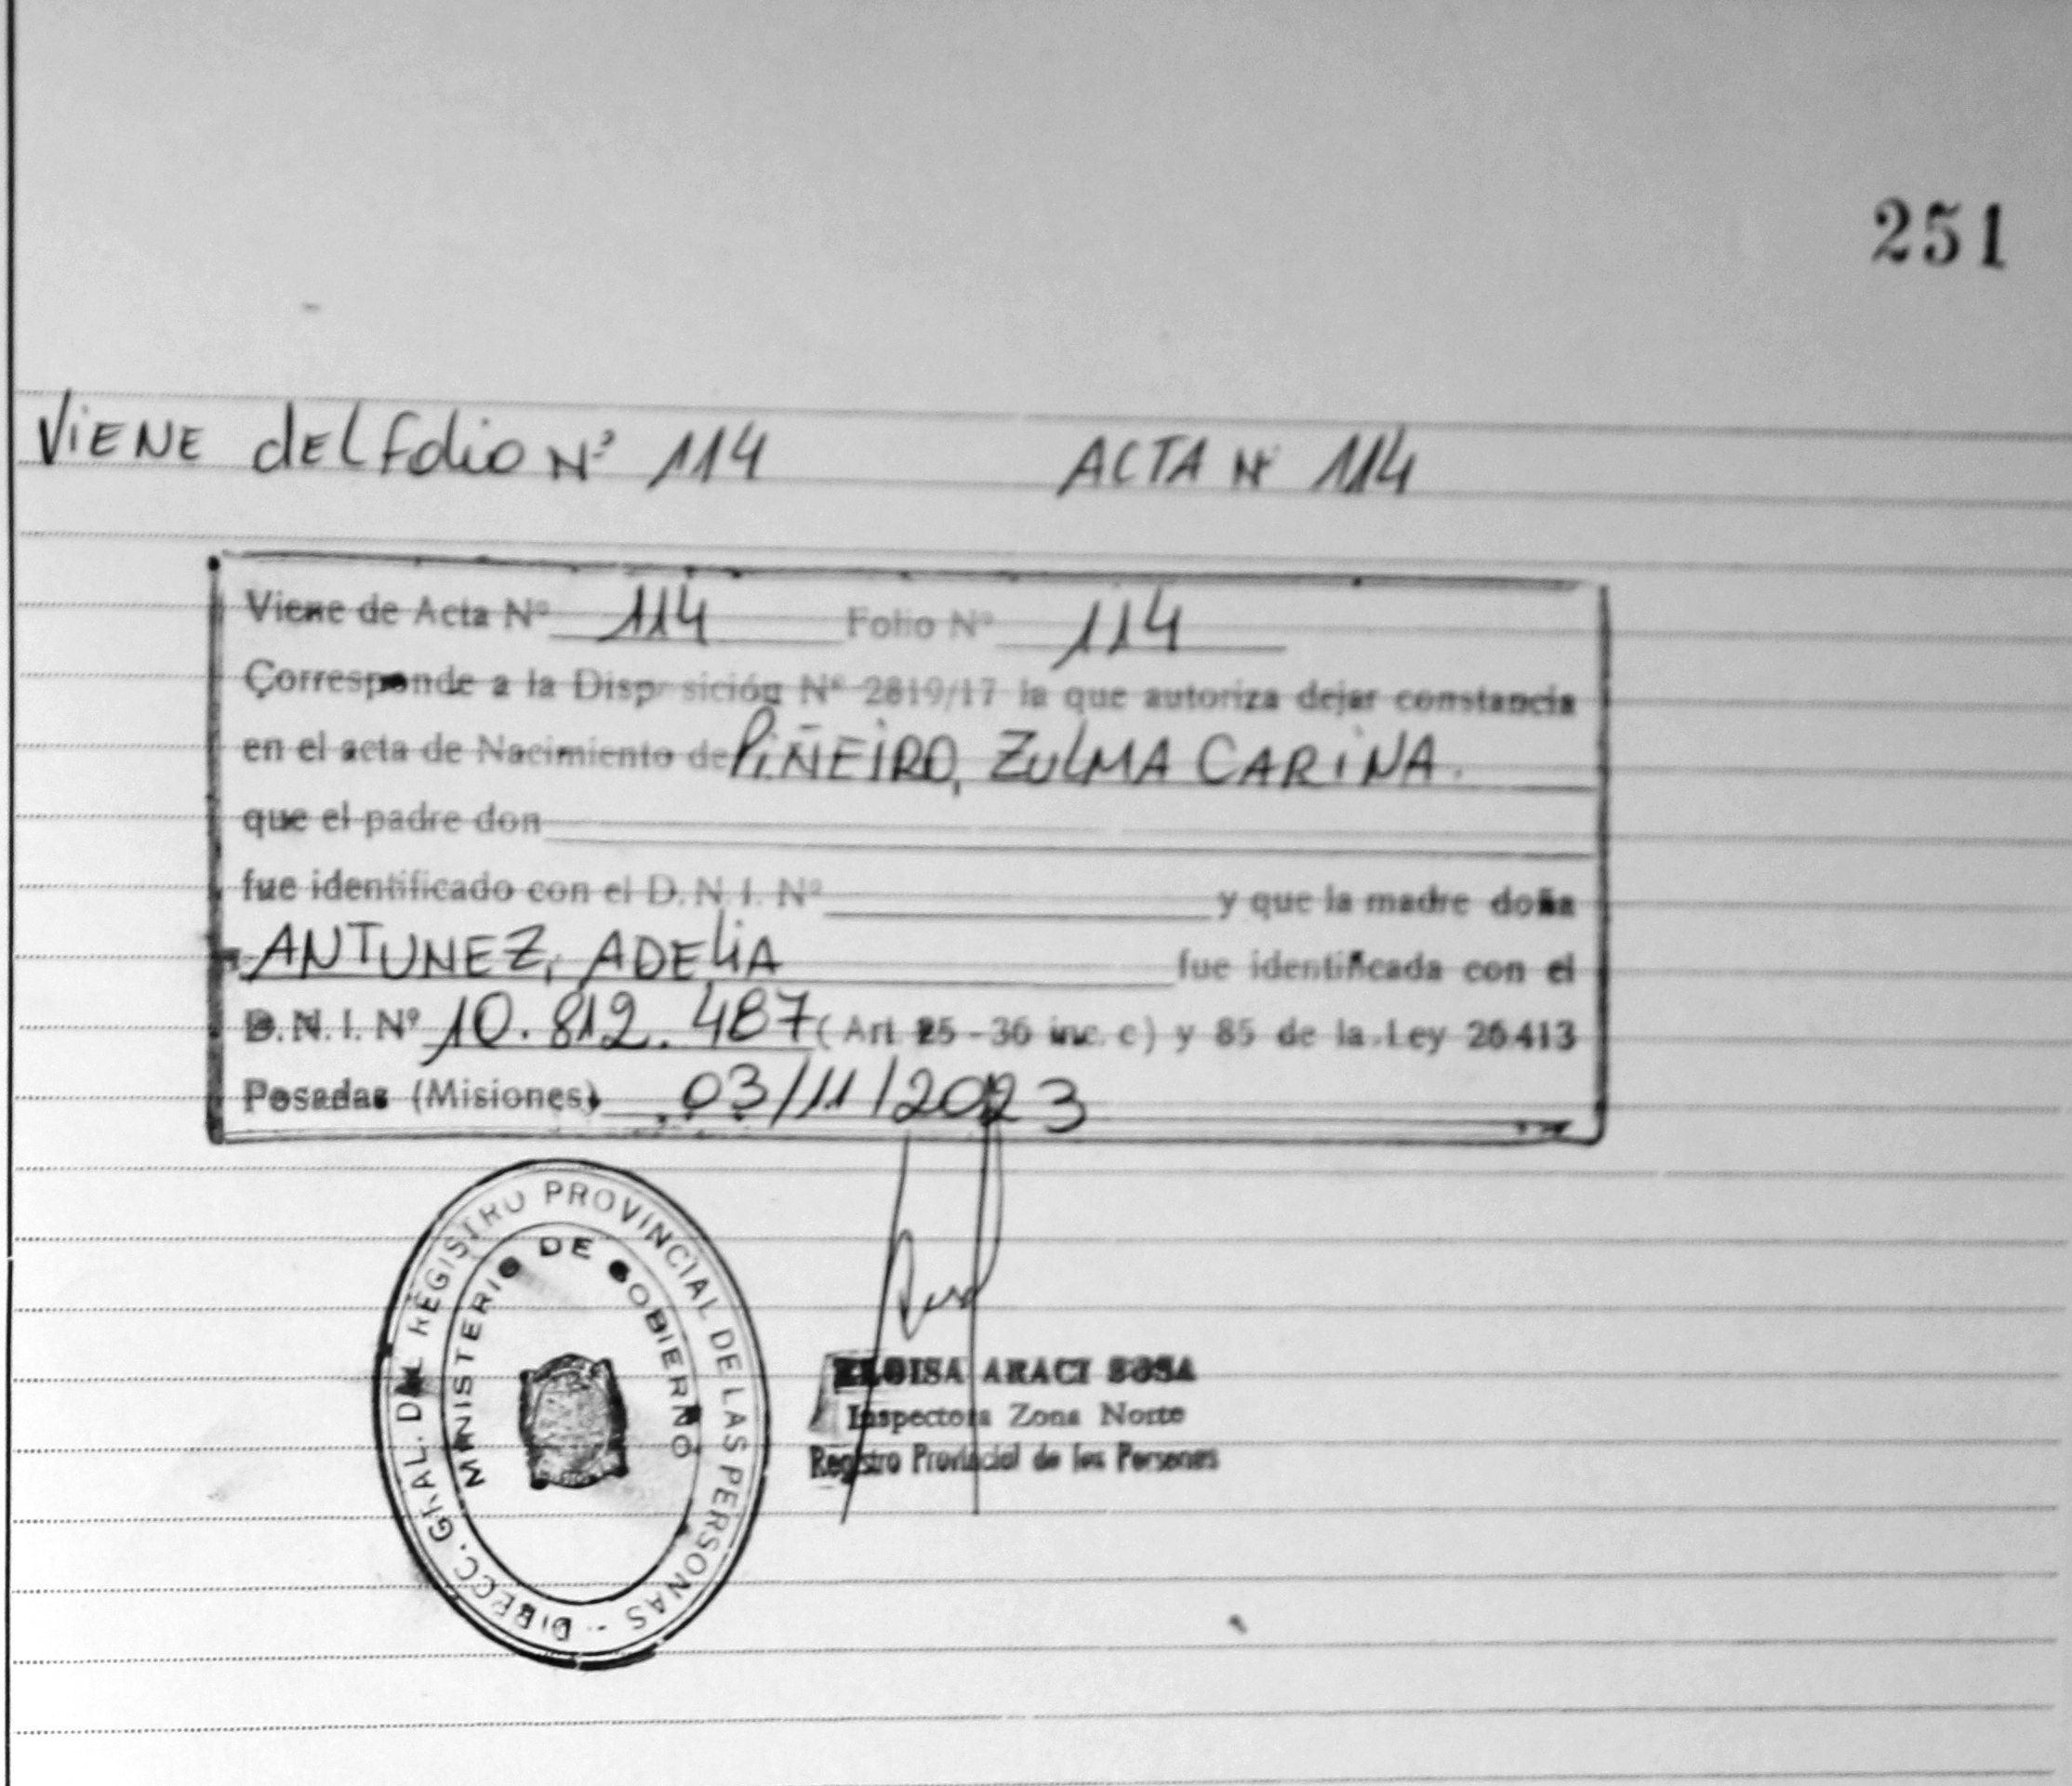 251
ViENE dEL folio Nº 114 ACTA Nº 114
Viene de Acta Nº 114 Folio Nº 114
Corresponde a la Disposición Nº 2819/17 la que autoriza dejar constancia
en el acta de Nacimiento de PiÑEiRO, ZULMA CARiNA.
que el padre don
fue identificado con el D.N.I. Nº y que la madre doña
ANTUNEZ, ADELiA fue identificada con el
D.N.I. Nº 10.812.487 (Art. 25-36 inc. c) y 85 de la Ley 26413
Posadas (Misiones) 03/11/2023
DIRECC. GRAL. DEL REGISTRO PROVINCIAL DE LAS PERSONAS
MINISTERIO DE GOBIERNO
ELOISA ARACI SOSA
Inspectora Zona Norte
Registro Provincial de las Personas